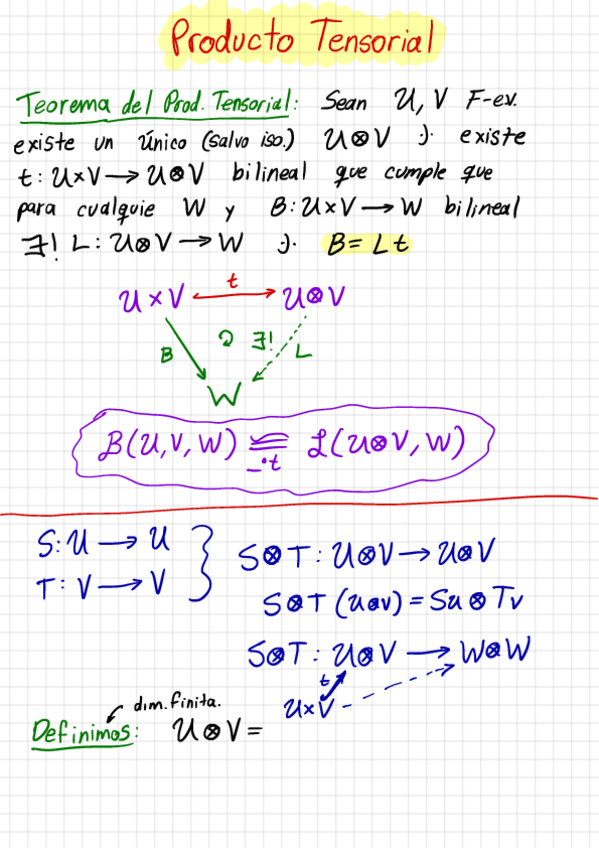 Producto Tensorial
Teorema del Prod. Tensorial: Sean U, V F-ev.
existe un único (salvo iso.) U⊗V ·)· existe
t: U×V → U⊗V bilineal que cumple que
para cualquie W y B: U×V → W bilineal
∃! L: U⊗V → W ·)· B = L t
U×V ↔ U⊗V
t
B ∃! L
W
B(U,V,W) ≅ L(U⊗V, W)
_∘t
S: U → U
T: V → V
S⊗T: U⊗V → U⊗V
S⊗T (u⊗v) = Su ⊗ Tv
S⊗T: U⊗V → W⊗W
t
U×V
dim. finita.
Definimos: U⊗V =